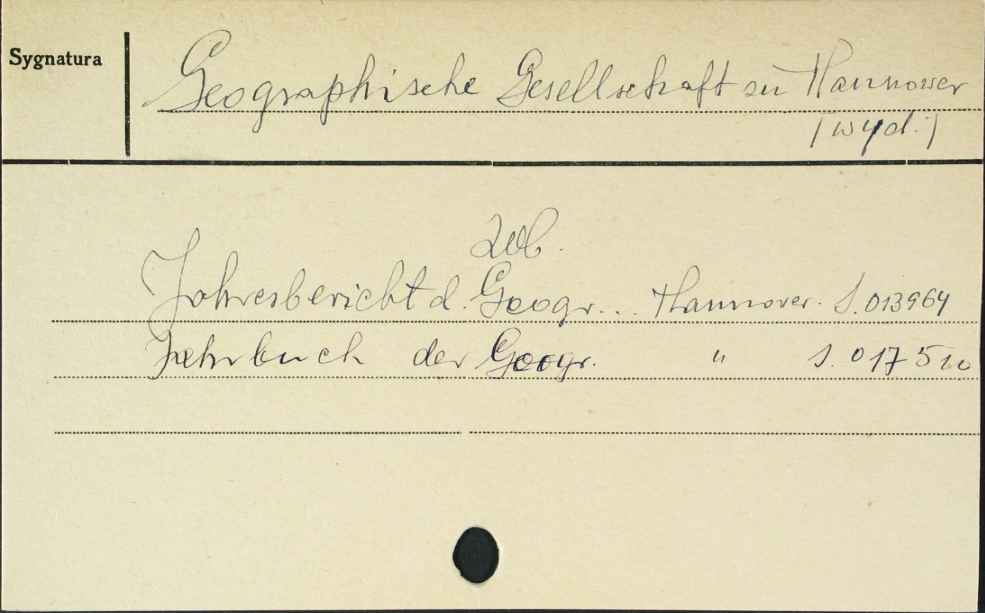 Sygnatura
Geographische Gesellschaft zu Hannover
(wyd.)
Zob.
Jahresbericht d. Geogr... Hannover. S. 013964
Jahrbuch der Geogr. " S. 017510